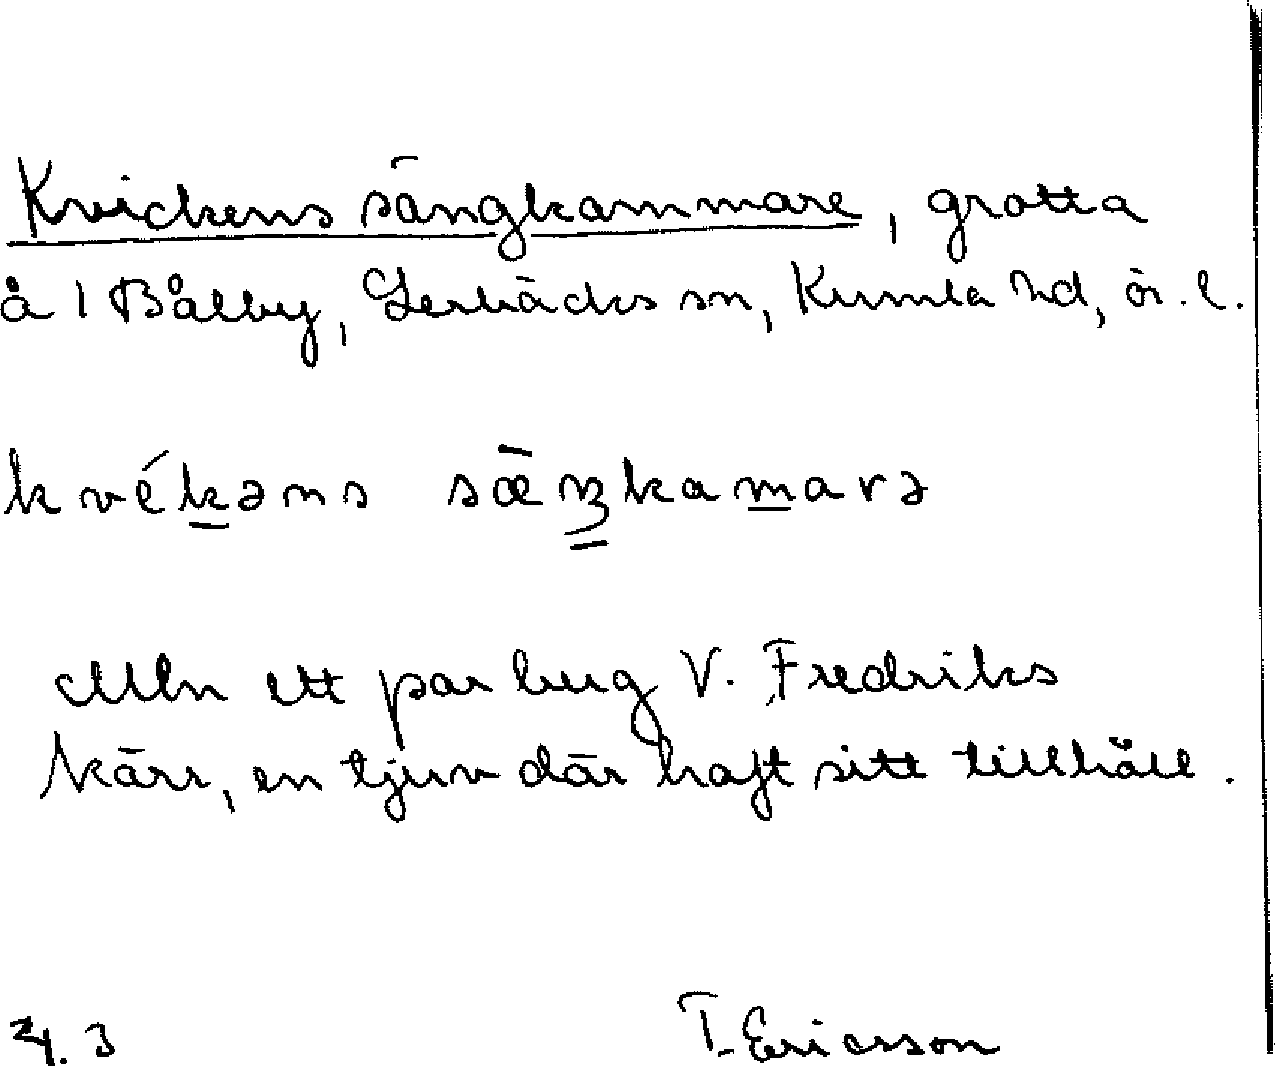 Kvickens sängkammare, grotta
å 1 Bålby, Lerbäcks sn, Kumla hd, ör. l.
kvékəns sǣŋkamarə
Mln ett par berg V. Fredriks
kärr, en tjuv där haft sitt tillhåll.
T. Ericsson